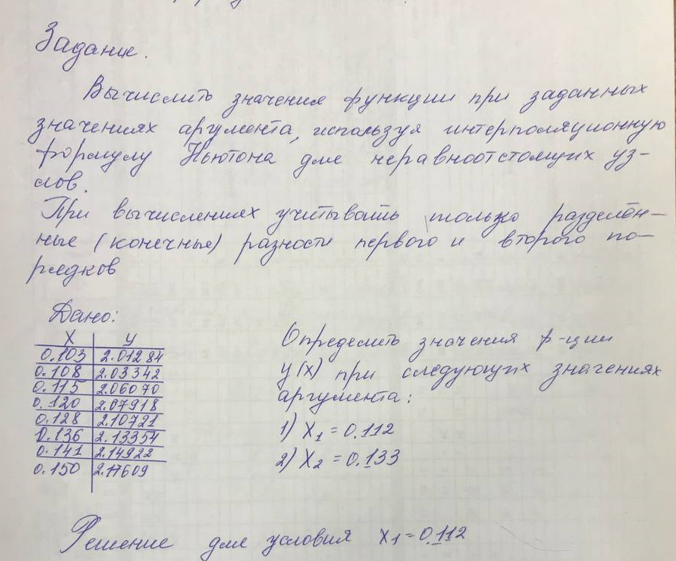 Задание.
Вычислить значения функции при заданных
значениях аргумента, используя интерполяционную
формулу Ньютона для неравноотстоящих уз-
лов.
При вычислениях учитывать только разделён-
ные (конечные) разности первого и второго по-
рядков
Дано:
X Y
0.103 2.01284
0.108 2.03342
0.115 2.06070
0.120 2.07918
0.128 2.10721
0.136 2.13354
0.141 2.14922
0.150 2.17609
Определить значения ф-ции
y(x) при следующих значениях
аргумента:
1) X1 = 0.112
2) X2 = 0.133
Решение для условия X1 = 0.112